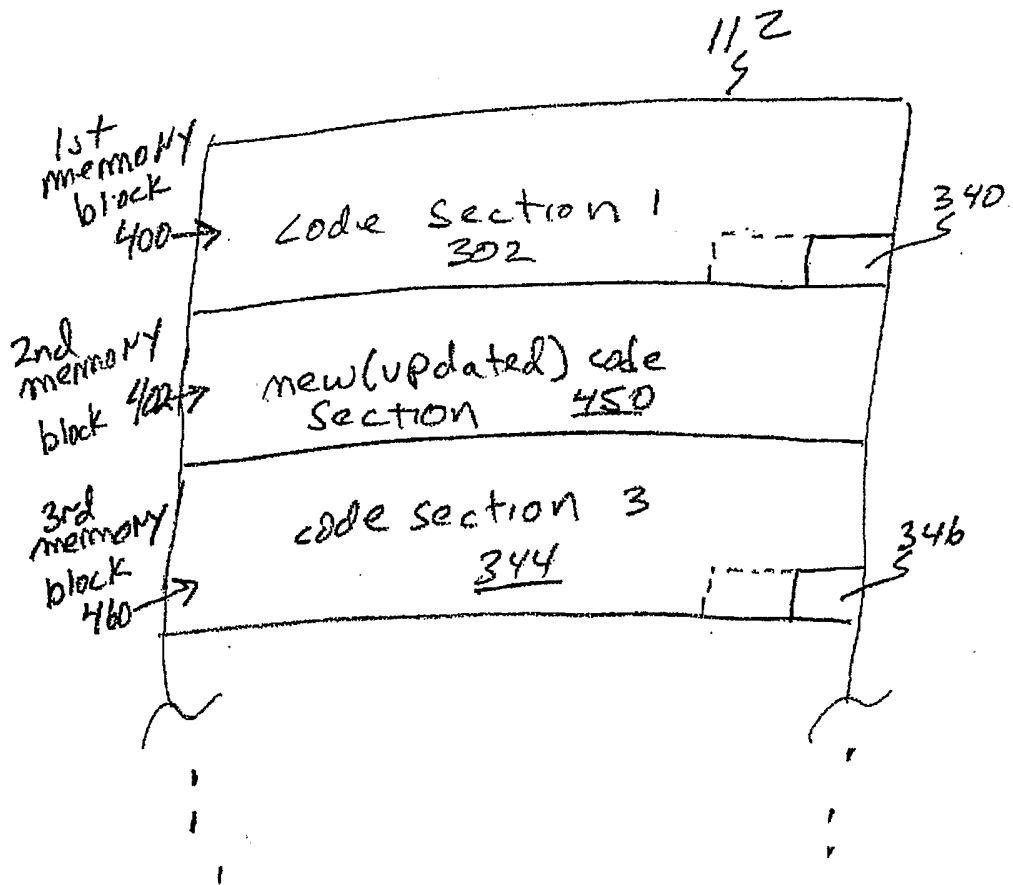 112
1st
memory
block
400
code section 1
302
340
2nd
memory
block 402
new (updated) code
section 450
3rd
memory
block
460
code section 3
344
346